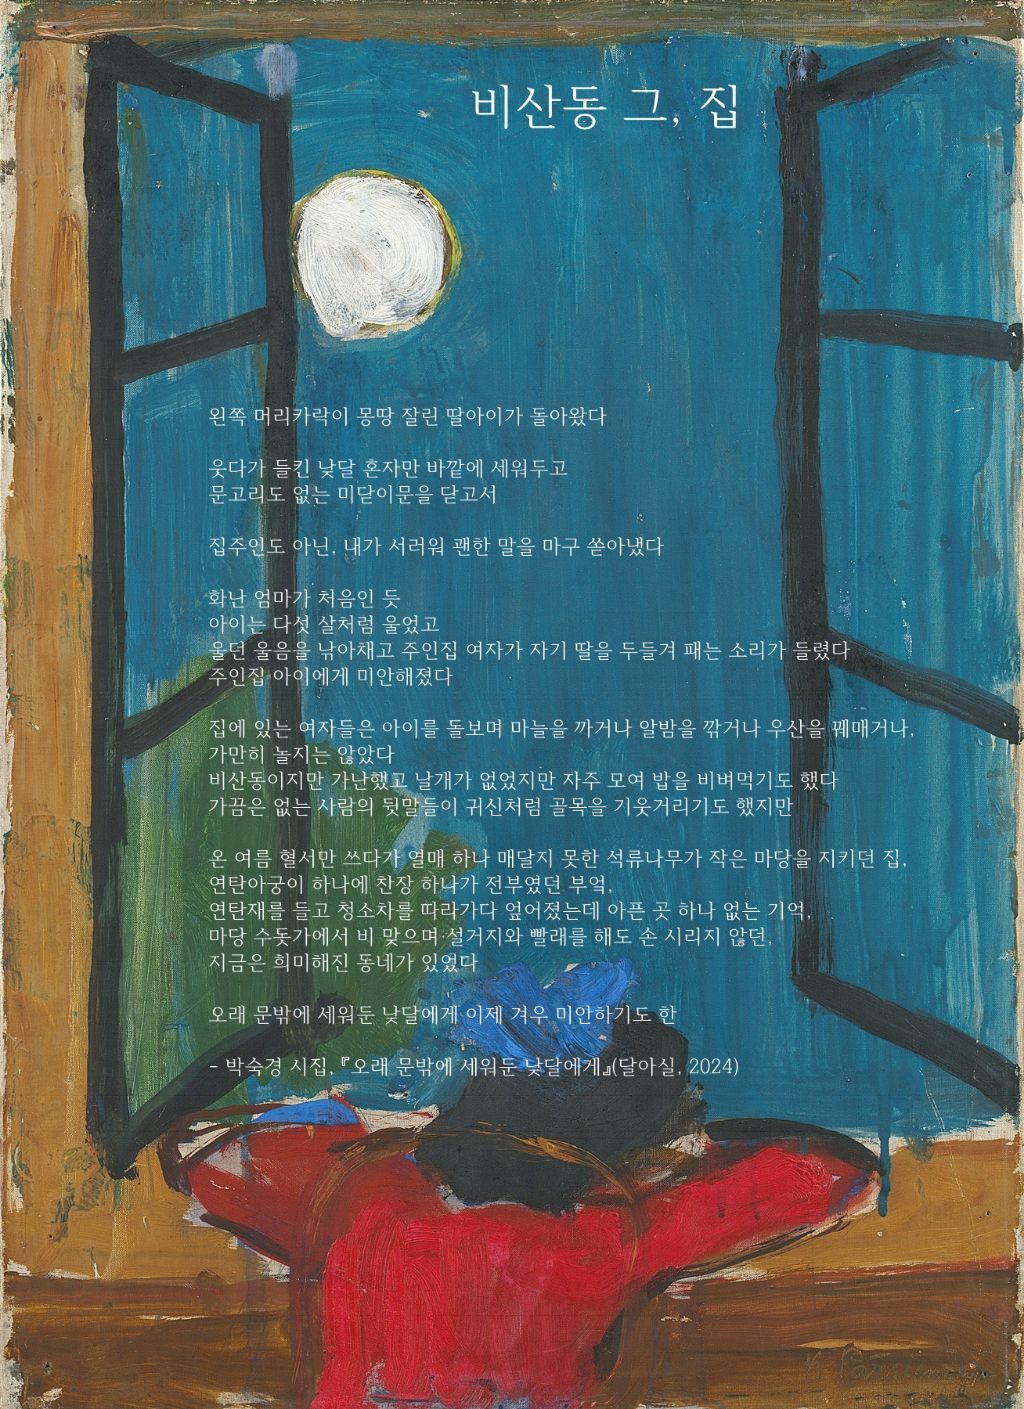 비산동 그, 집
왼쪽 머리카락이 몽땅 잘린 딸아이가 돌아왔다
웃다가 들킨 낮달 혼자만 바깥에 세워두고
문고리도 없는 미닫이문을 닫고서
집주인도 아닌, 내가 서러워 괜한 말을 마구 쏟아냈다
화난 엄마가 처음인 듯
아이는 다섯 살처럼 울었고
울던 울음을 낚아채고 주인집 여자가 자기 딸을 두들겨 패는 소리가 들렸다
주인집 아이에게 미안해졌다
집에 있는 여자들은 아이를 돌보며 마늘을 까거나 알밤을 깎거나 우산을 꿰매거나,
가만히 놀지는 않았다
비산동이지만 가난했고 날개가 없었지만 자주 모여 밥을 비벼먹기도 했다
가끔은 없는 사람의 뒷말들이 귀신처럼 골목을 기웃거리기도 했지만
온 여름 혈서만 쓰다가 열매 하나 매달지 못한 석류나무가 작은 마당을 지키던 집,
연탄아궁이 하나에 찬장 하나가 전부였던 부엌,
연탄재를 들고 청소차를 따라가다 엎어졌는데 아픈 곳 하나 없는 기억,
마당 수돗가에서 비 맞으며 설거지와 빨래를 해도 손 시리지 않던,
지금은 희미해진 동네가 있었다
오래 문밖에 세워둔 낮달에게 이제 겨우 미안하기도 한
- 박숙경 시집, 『오래 문밖에 세워둔 낮달에게』(달아실, 2024)